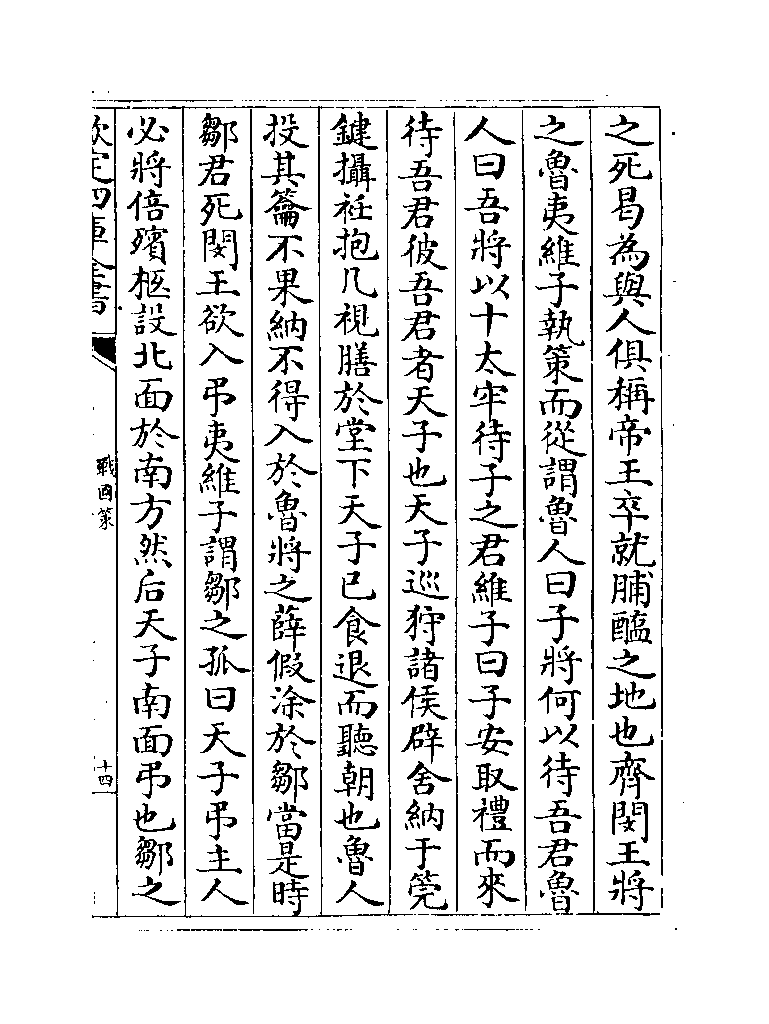 之死曷為與人俱稱帝王卒就脯醢之地也齊閔王將
之魯夷維子執策而從謂魯人曰子將何以待吾君魯
人曰吾將以十太牢待子之君維子曰子安取禮而來
待吾君彼吾君者天子也天子巡狩諸侯辟舍納于筦
鍵攝衽抱几視膳於堂下天子已食退而聽朝也魯人
投其籥不果納不得入於魯將之薛假涂於鄒當是時
鄒君死閔王欲入弔夷維子謂鄒之孤曰天子弔主人
必將倍殯柩設北面於南方然后天子南面弔也鄒之
欽定四庫全書
戰國策
十四